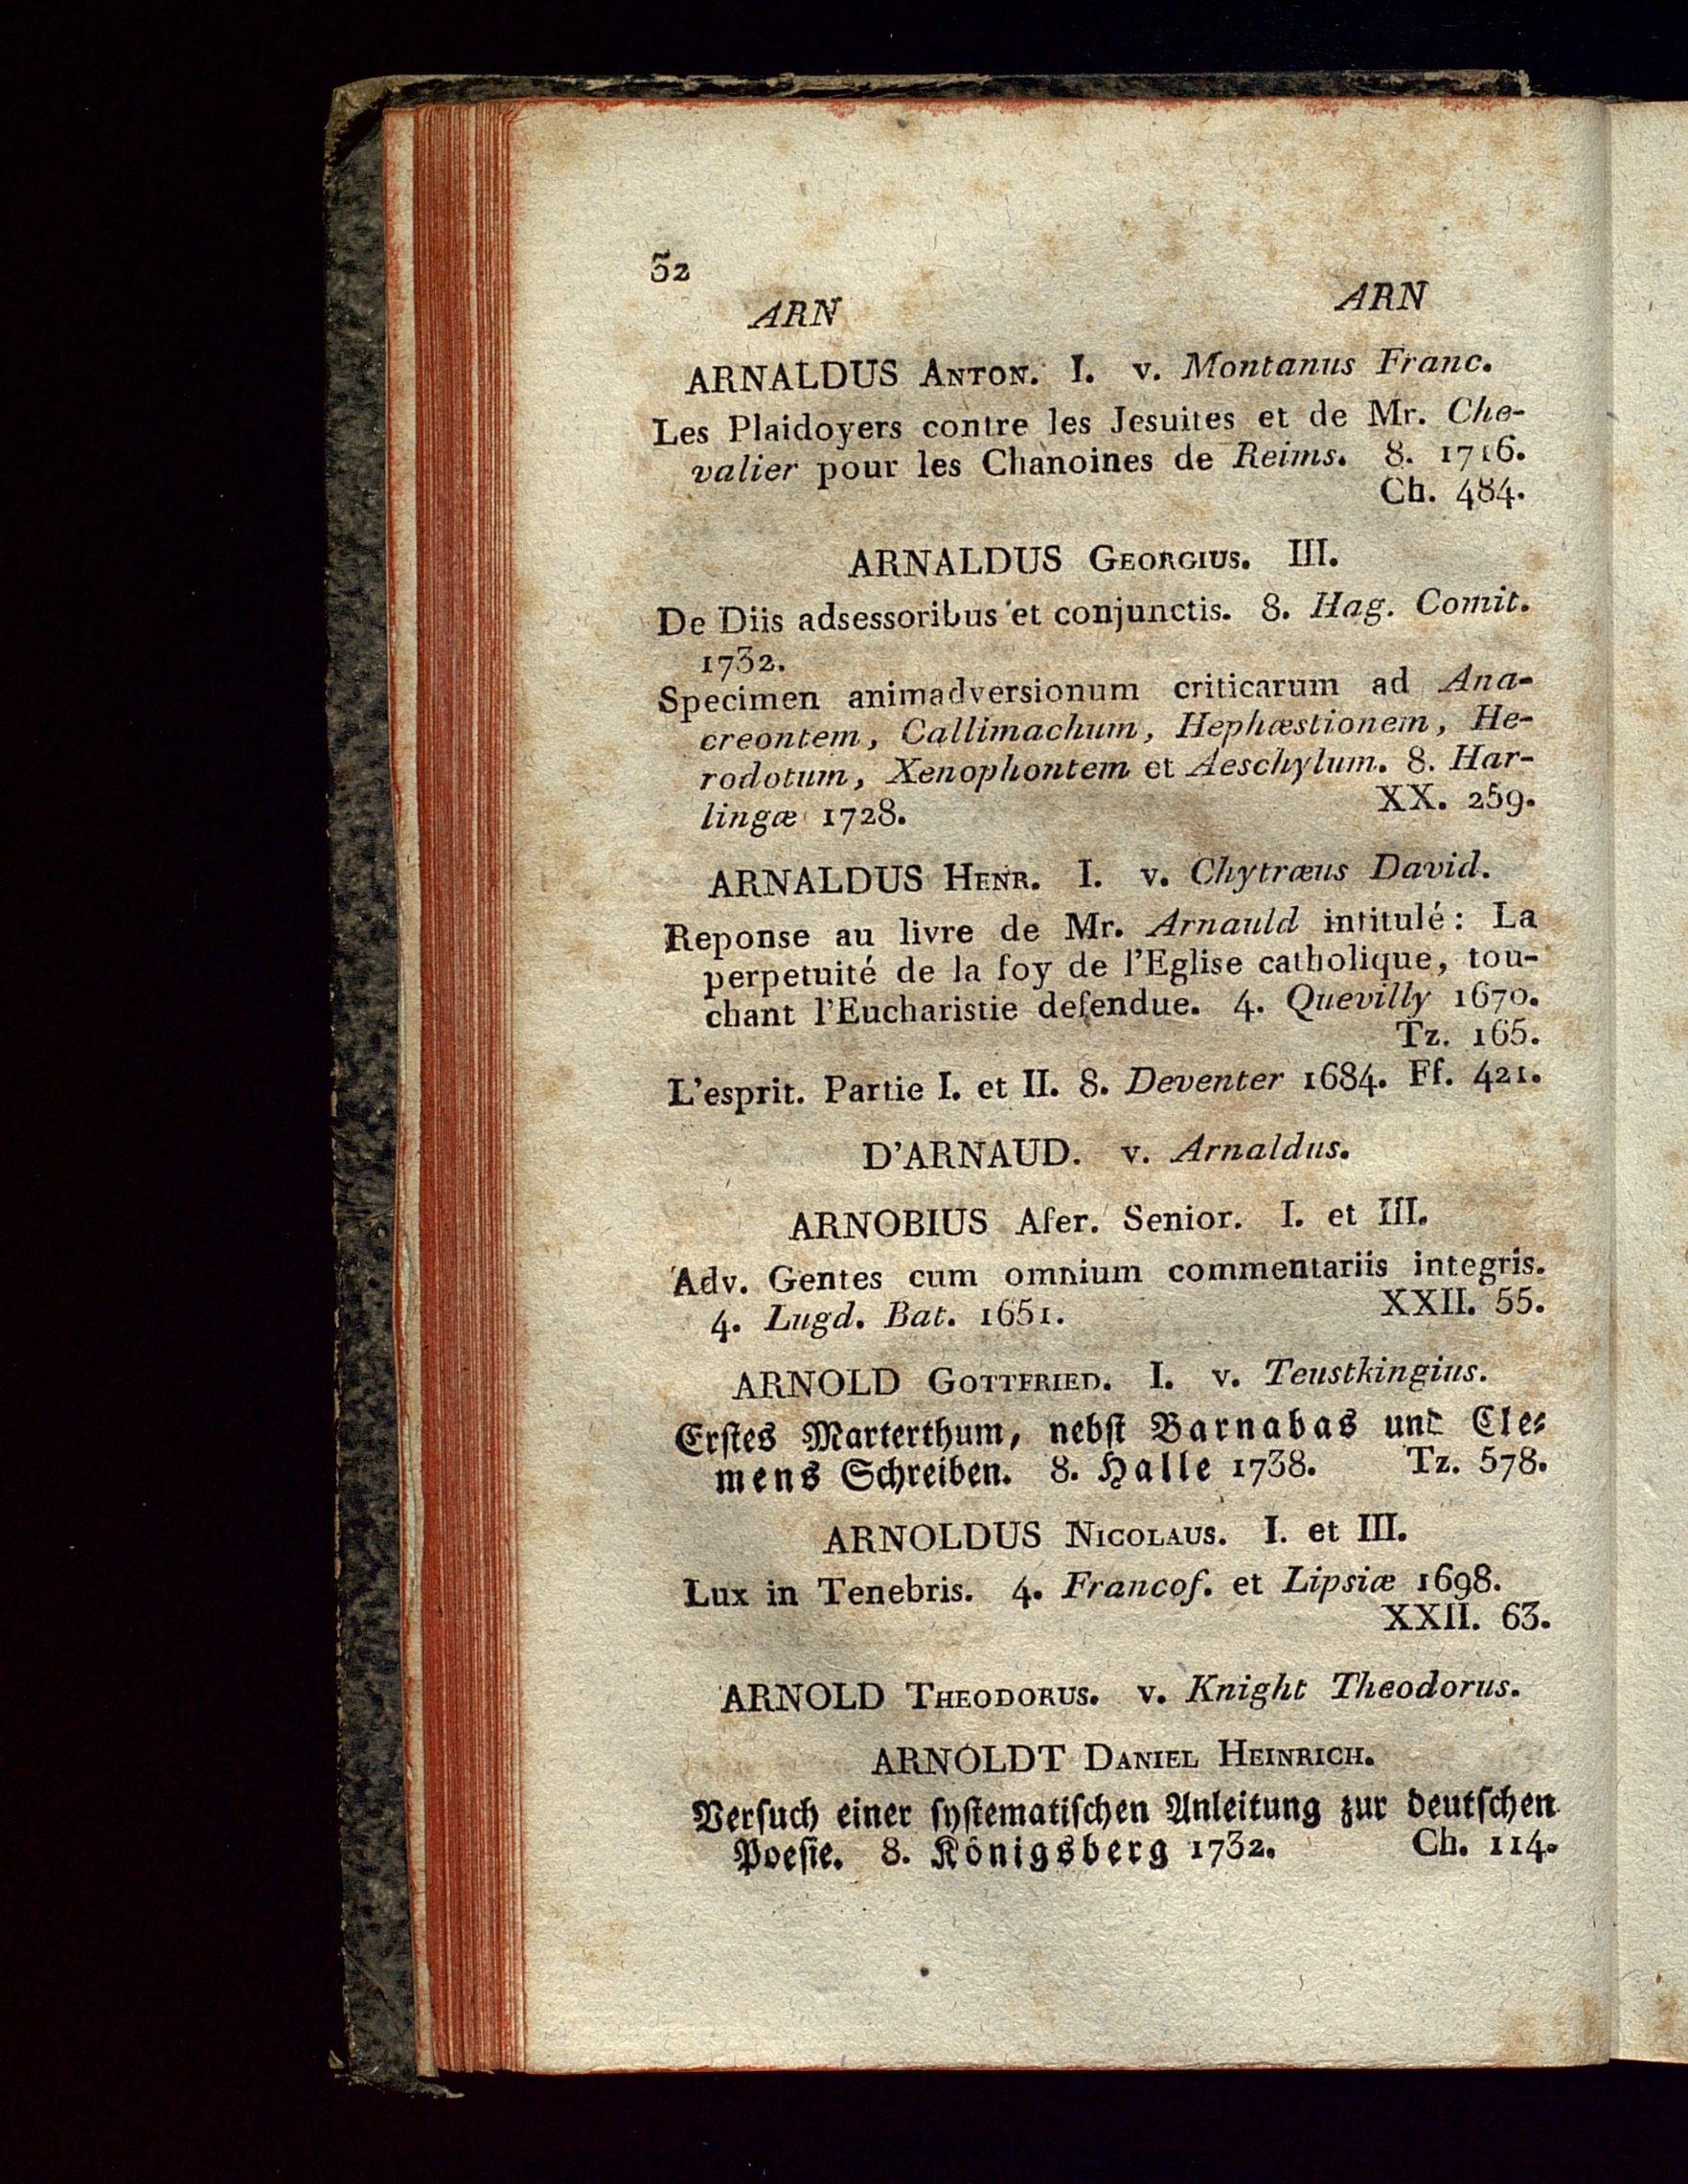 52
ARN ARN
ARNALDUS ANTON. I. v. Montanus Franc.
Les Plaidoyers contre les Jesuites et de Mr. Che-
valier pour les Chanoines de Reims. 8. 1716.
Ch. 484.
ARNALDUS GEORGIUS. III.
De Diis adsessoribus et conjunctis. 8. Hag. Comit.
1732.
Specimen animadversionum criticarum ad Ana-
creontem, Callimachum, Hephæstionem, He-
rodotum, Xenophontem et Aeschylum. 8. Har-
lingæ 1728. XX. 259.
ARNALDUS HENR. I. v. Chytræus David.
Reponse au livre de Mr. Arnauld intitulé: La
perpetuité de la foy de l'Eglise catholique, tou-
chant l'Eucharistie defendue. 4. Quevilly 1670.
Tz. 165.
L'esprit. Partie I. et II. 8. Deventer 1684. Ff. 421.
D'ARNAUD. v. Arnaldus.
ARNOBIUS Afer. Senior. I. et III.
Adv. Gentes cum omnium commentariis integris.
4. Lugd. Bat. 1651. XXII. 55.
ARNOLD GOTTFRIED. I. v. Teustkingius.
Erſtes Marterthum, nebſt Barnabas und Cle⸗
mens Schreiben. 8. Halle 1738. Tz. 578.
ARNOLDUS NICOLAUS. I. et III.
Lux in Tenebris. 4. Francof. et Lipsiæ 1698.
XXII. 63.
ARNOLD THEODORUS. v. Knight Theodorus.
ARNOLDT DANIEL HEINRICH.
Verſuch einer ſyſtematiſchen Anleitung zur deutſchen
Poeſie. 8. Königsberg 1732. Ch. 114.